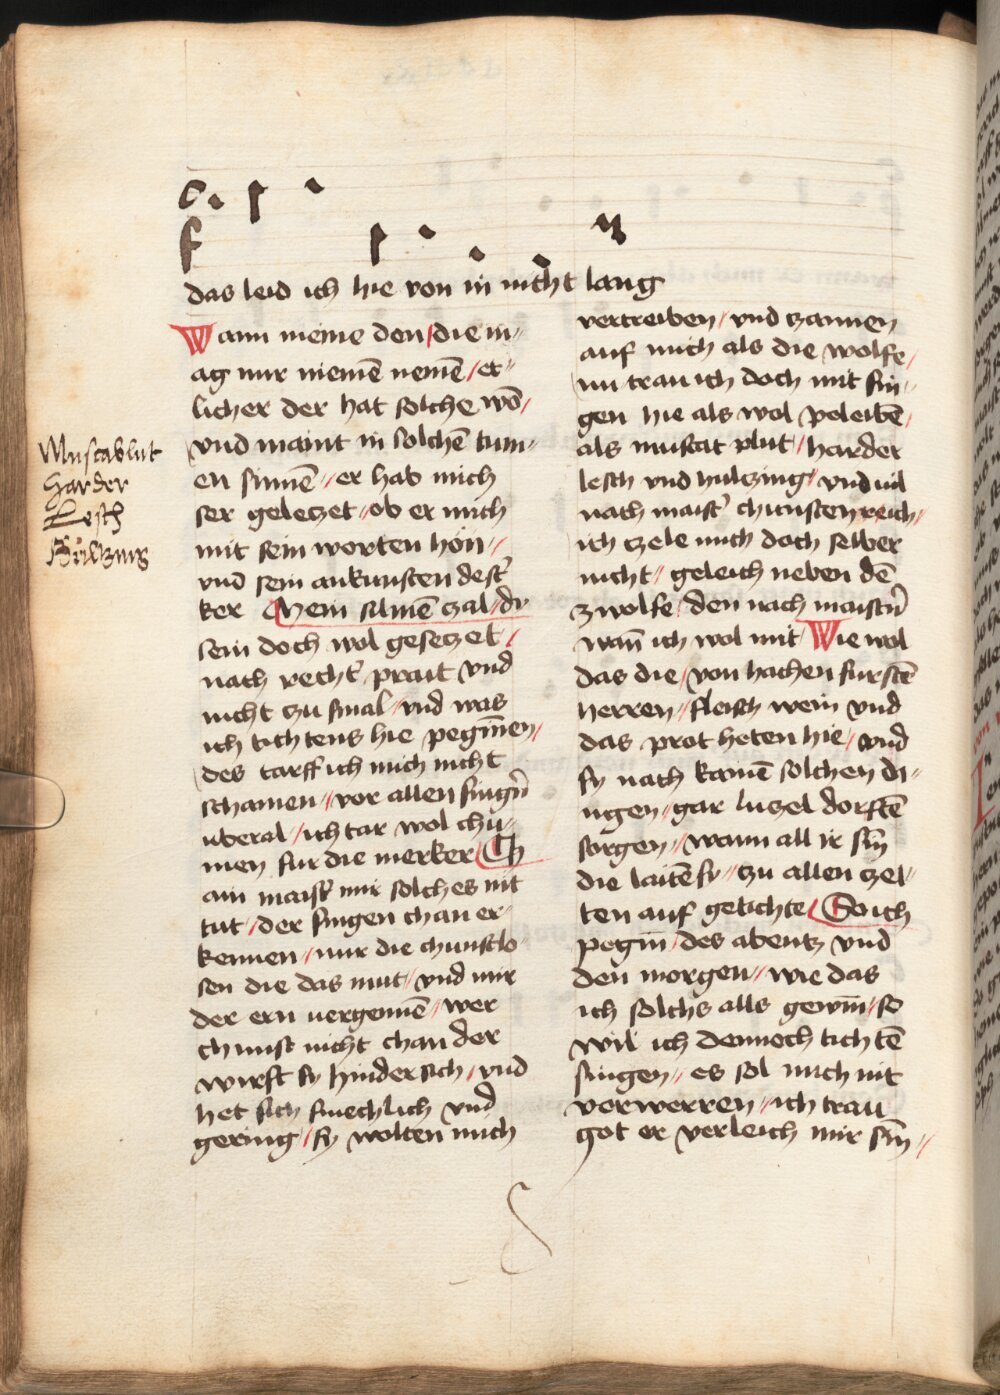 das leid ich hie von in nicht lang
Wann meine den / die m-
ag mir niemē nemē / er-
licher der hat solche wō /
vnd maint in solchē tum-
en sinnē // er hab mich
ser geleczet // ob er mich
mit sein worten hōn //
vnd sein ankunsten dest'
ker Mein silmē zal / dy
sein doch wol gesetzet /
nach recht' prait vnd
nicht zu smal / vnd was
ich tichtens hie peginnen /
des tarff ich mich nicht
schamen // vor allen singn̄
uberal / ich tar wol chū-
men fur die merker Ch
ain maist' mir solches nit
tut / der singen chan er-
kennen / nur die chunstlo-
sen die das mut / vnd mir
der ern vergennē / wer
chunst nicht chan der
wirft sy hinder sich / vnd
het sich smechlich vnd
gering / sy wolten mich
vertreiben / vnd zannen
auf mich als die wolfe /
nu trau ich doch mit sin-
gen hie als wol peleibē /
als muscat plut / harder
lesch vnd hulczing / vnd uil
nach maist' chunstenreich /
ich zele mich doch selber
nicht // geleich neben dē
zwolfe den nach maistn̄
wan̄ ich wol mit Wie wol
das die / von hachen furstē
herren // fleisch wein vnd
das prot heten hie / vnd
sy nach kamē solchen di-
ngen / gar luzel dorftē
sorgen // wann all ir sin̄
die laitē sy // zu allen zei-
ten auf getichte So ich
pegin̄ / des abentz vnd
den morgen // wie das
ich solchs alls gewin̄ / so
wil ich dennoch tichtē
singen // es sol mich nit
verwerren // ich trau
got er verleich mir sin̄ //
Muscablut
Harder
Lesch
Hültzing